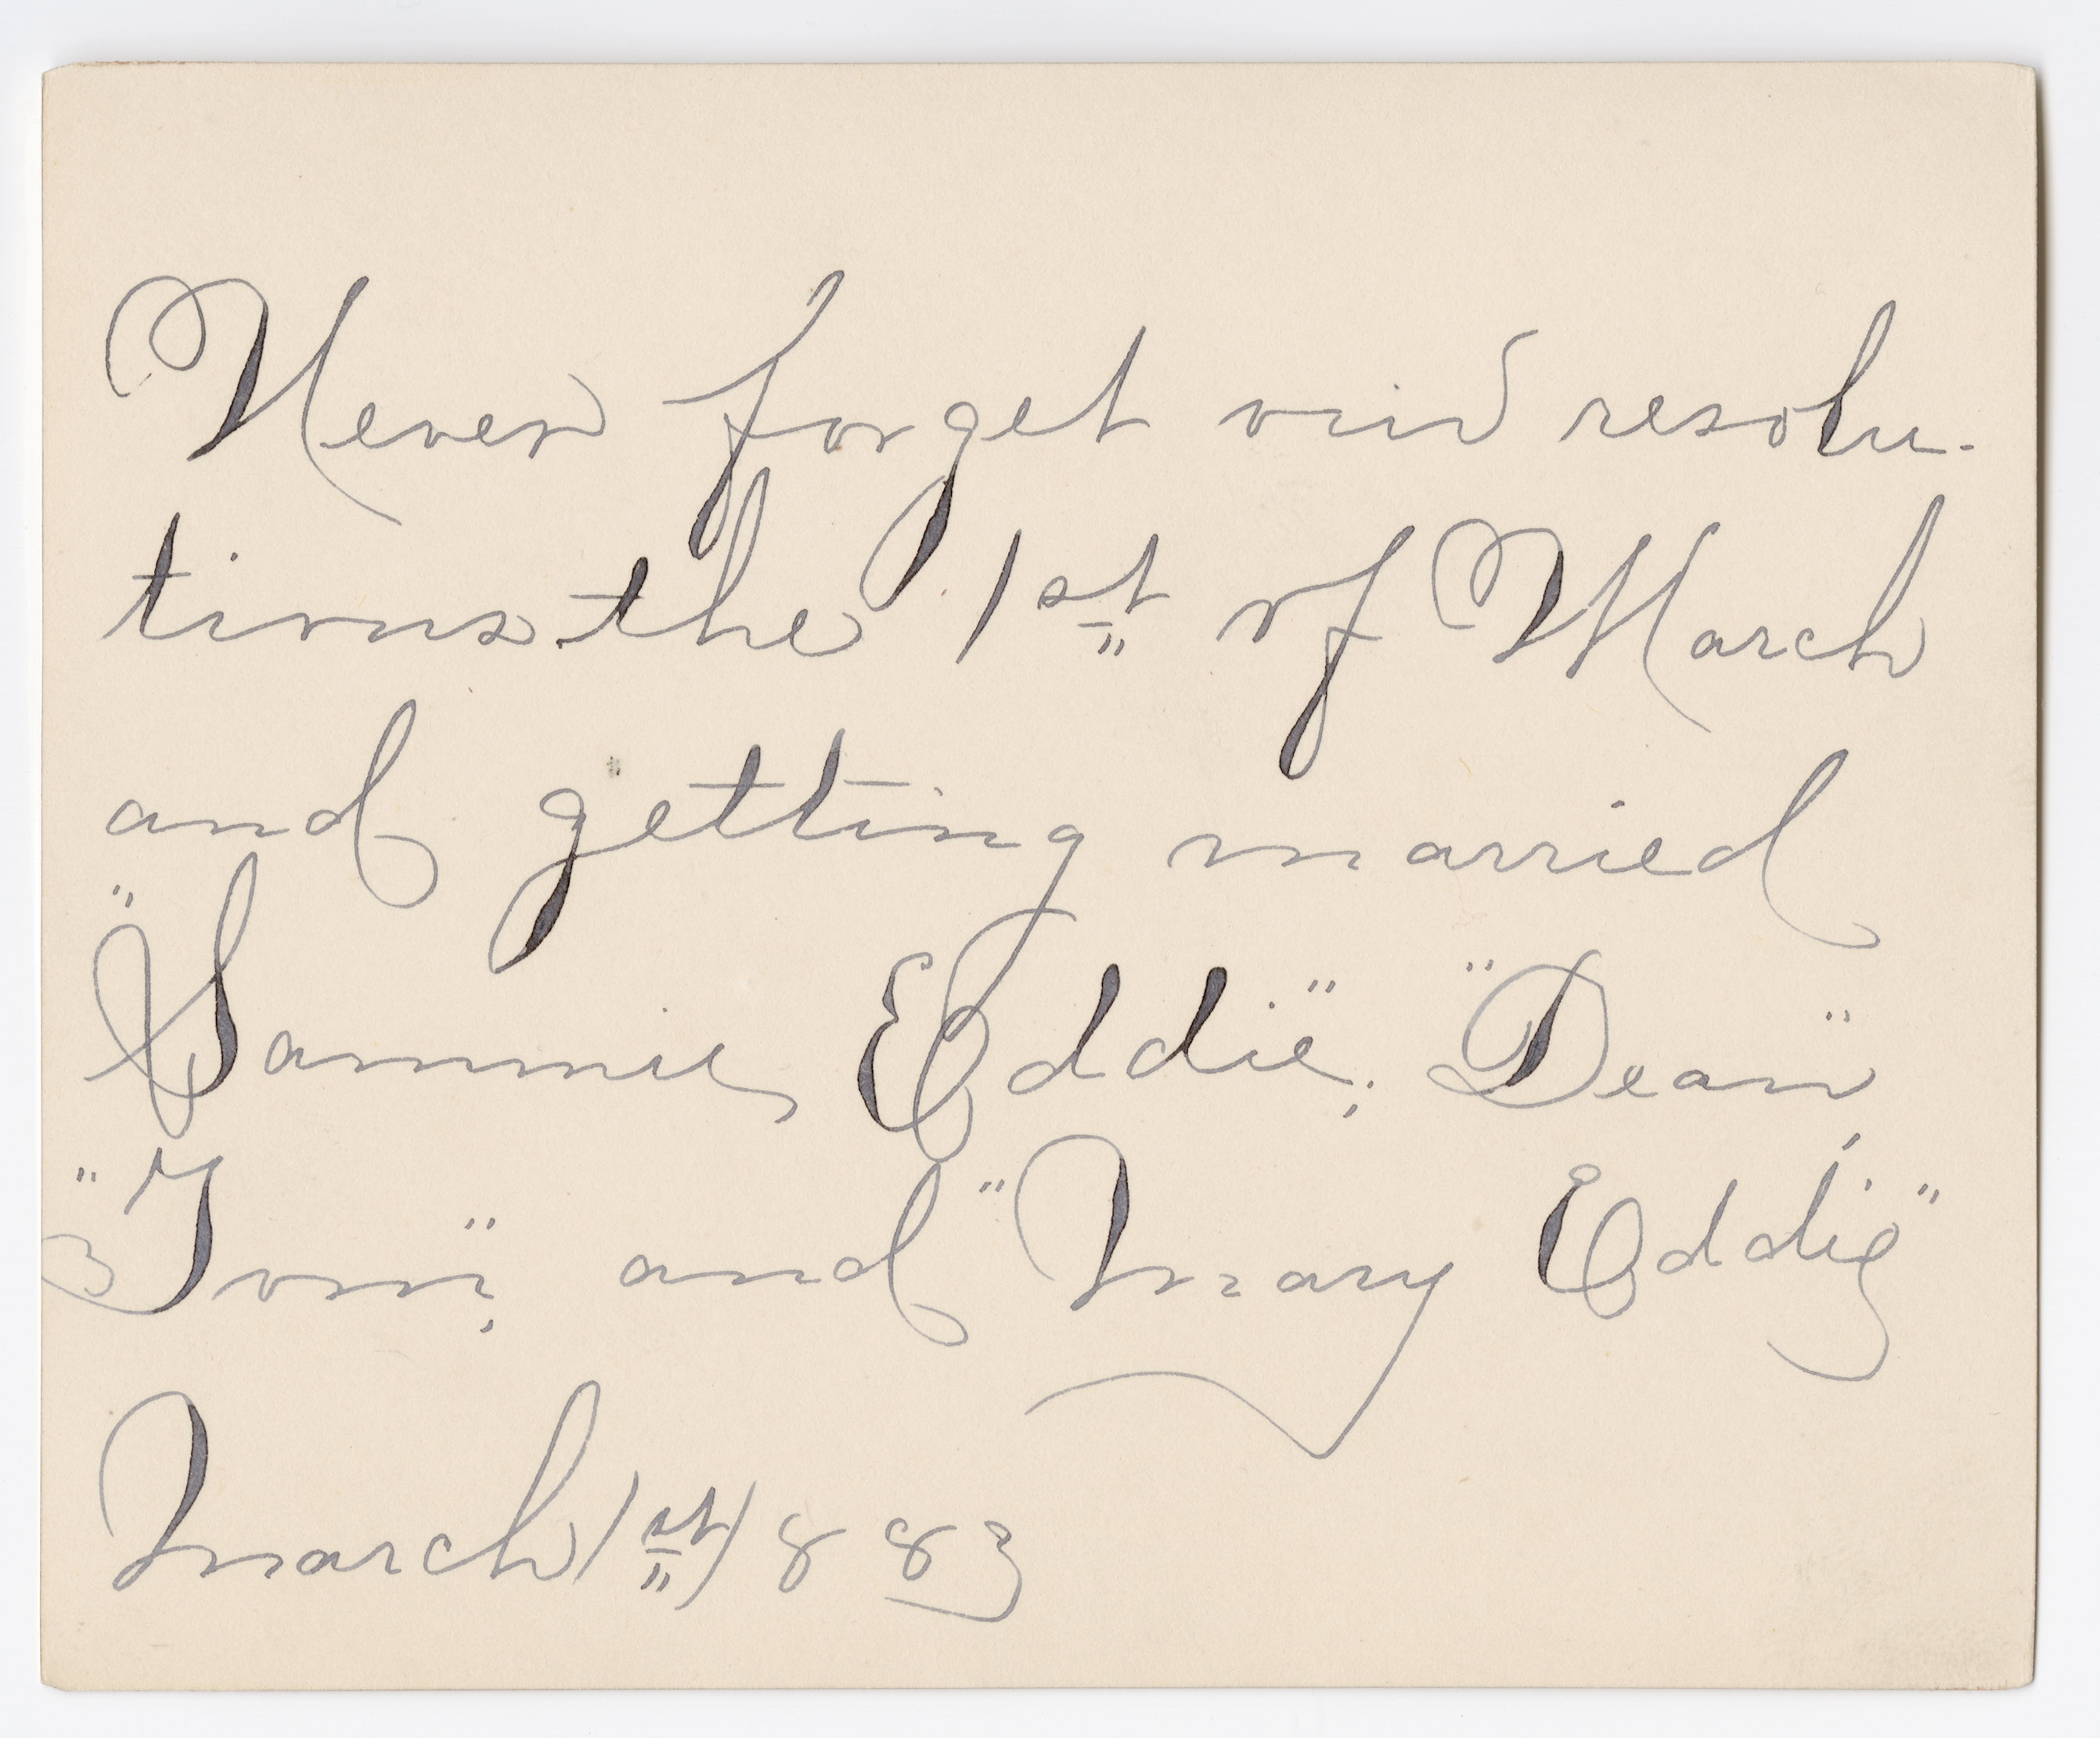 Never forget our resolu-
tions the 1st of March
and getting married
"Sammie Eddie", "Dean",
"Tom", and "Mary Eddie"
March 1st 1883